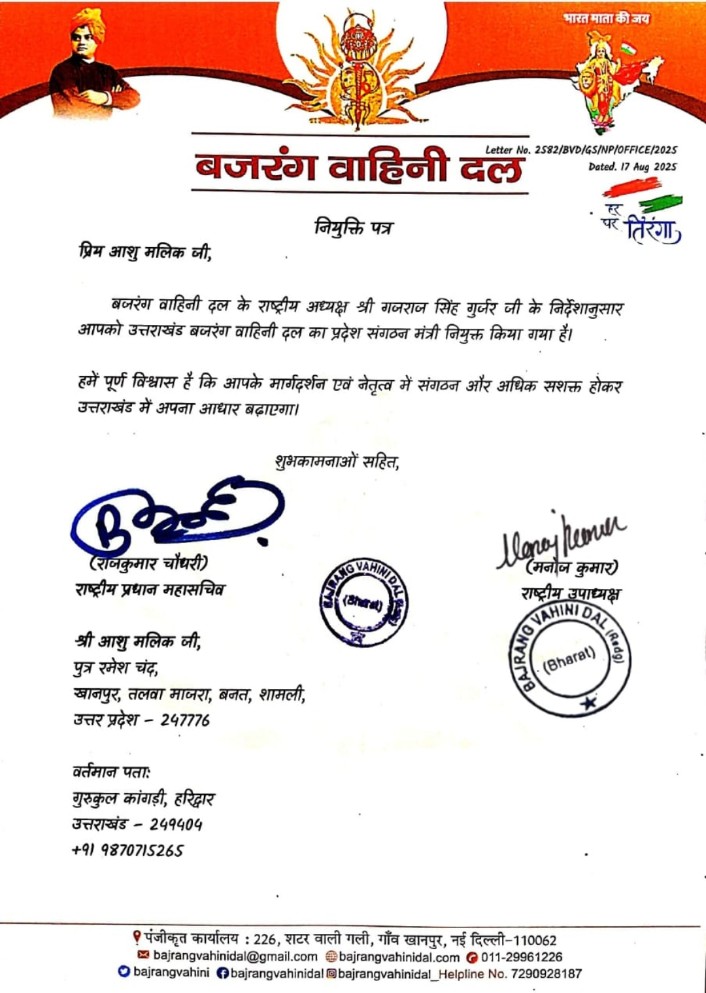 भारत माता की जय
Letter No. 2582/BVD/GS/NP/OFFICE/2025
Dated. 17 Aug 2025
बजरंग वाहिनी दल
हर
घर तिरंगा
नियुक्ति पत्र
प्रिय आशु मलिक जी,
बजरंग वाहिनी दल के राष्ट्रीय अध्यक्ष श्री गजराज सिंह गुर्जर जी के निर्देशानुसार
आपको उत्तराखंड बजरंग वाहिनी दल का प्रदेश संगठन मंत्री नियुक्त किया गया है।
हमें पूर्ण विश्वास है कि आपके मार्गदर्शन एवं नेतृत्व में संगठन और अधिक सशक्त होकर
उत्तराखंड में अपना आधार बढ़ाएगा।
शुभकामनाओं सहित,
Manoj Kumar
(राजकुमार चौधरी)
राष्ट्रीय प्रधान महासचिव
(मनोज कुमार)
राष्ट्रीय उपाध्यक्ष
BAJRANG VAHINI DAL (Redg)
(Bharat)
BAJRANG VAHINI DAL (Redg)
(Bharat)
श्री आशु मलिक जी,
पुत्र रमेश चंद,
खानपुर, तलवा माजरा, बनत, शामली,
उत्तर प्रदेश – 247776
वर्तमान पता:
गुरुकुल कांगड़ी, हरिद्वार
उत्तराखंड – 249404
+91 9870715265
पंजीकृत कार्यालय : 226, शटर वाली गली, गाँव खानपुर, नई दिल्ली-110062
bajrangvahinidal@gmail.com bajrangvahinidal.com 011-29961226
bajrangvahini bajrangvahinidal bajrangvahinidal_Helpline No. 7290928187